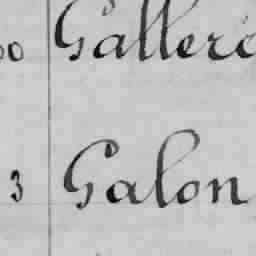 Galler
3 Galon